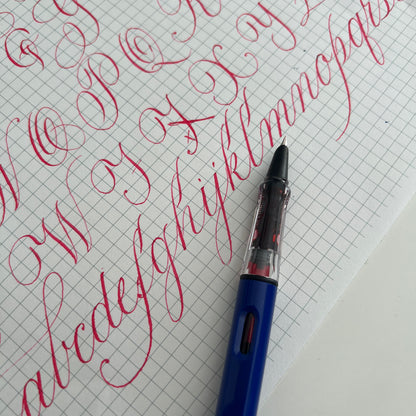 G
N O P Q R
W X Y Z
abcdefghijklmnopqrs